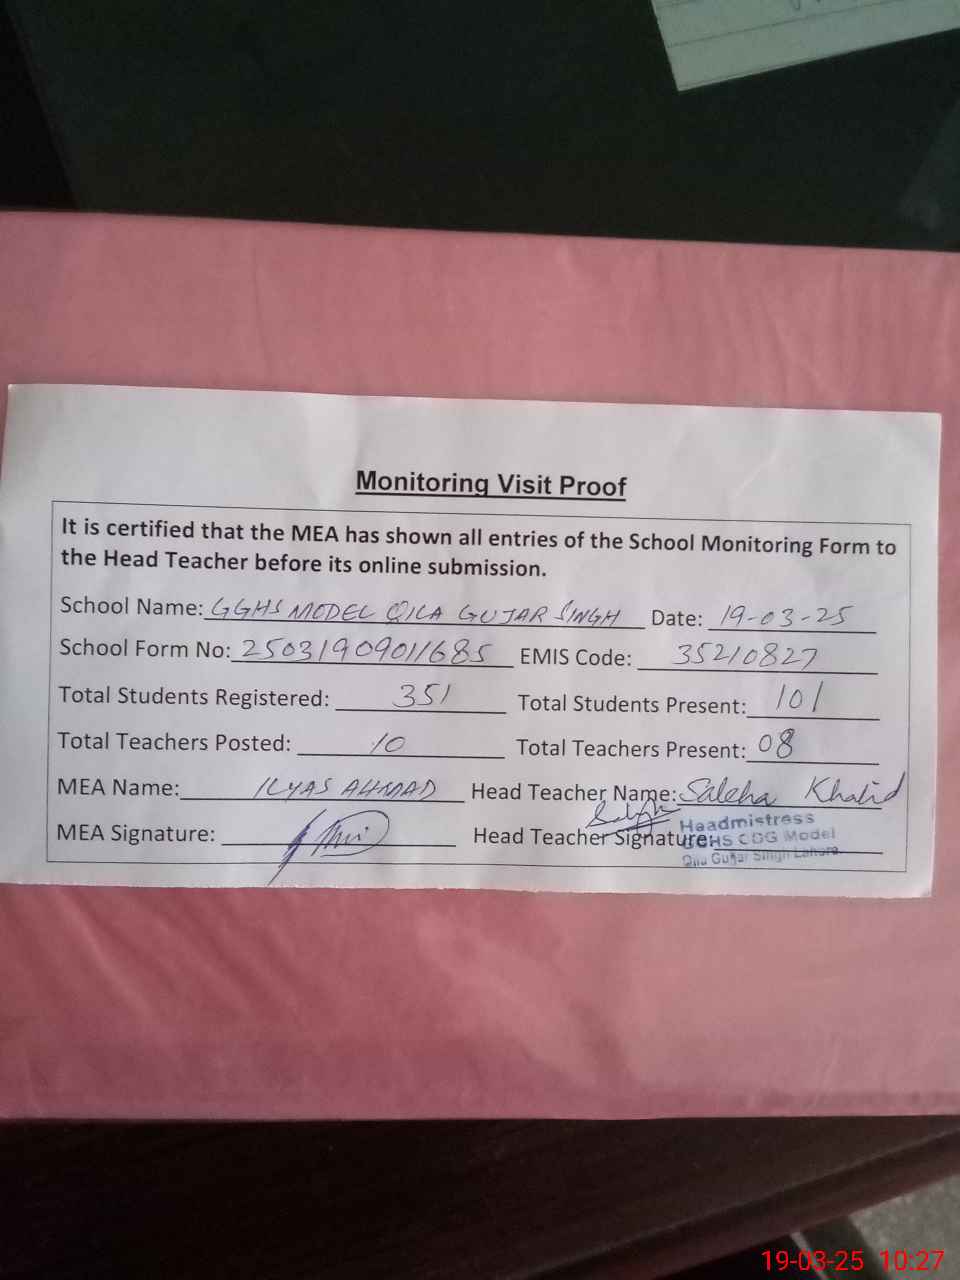 Monitoring Visit Proof
It is certified that the MEA has shown all entries of the School Monitoring Form to
the Head Teacher before its online submission.
School Name: GGHS MODEL QILA GUJAR SINGH Date: 19-03-25
School Form No: 25031909011685 EMIS Code: 35210827
Total Students Registered: 351 Total Students Present: 101
Total Teachers Posted: 10 Total Teachers Present: 08
MEA Name: ILYAS AHMAD Head Teacher Name: Saleha Khalid
MEA Signature: Head Teacher Signature:
Headmistress
GGHS CDG Model
Qila Gujjar Singh Lahore
19-03-25 10:27